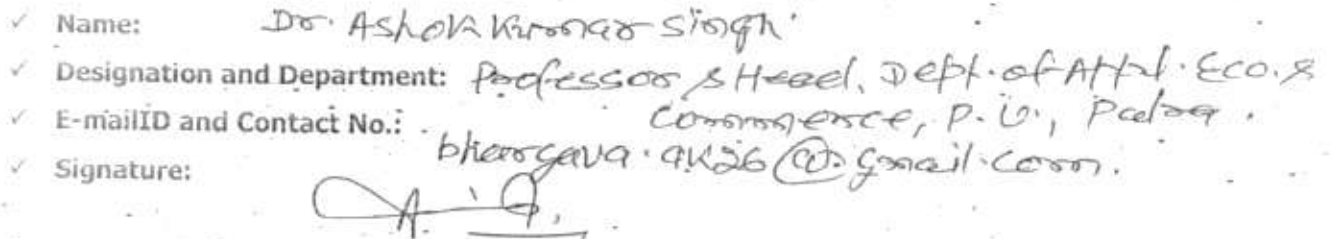 ✓ Name: Dr. Ashok Kumar Singh
✓ Designation and Department: Professor & Head, Dept. of Appl. Eco. &
Commerce, P.U., Patna.
✓ E-mailID and Contact No.:
bhargava.ak26@gmail.com.
✓ Signature: